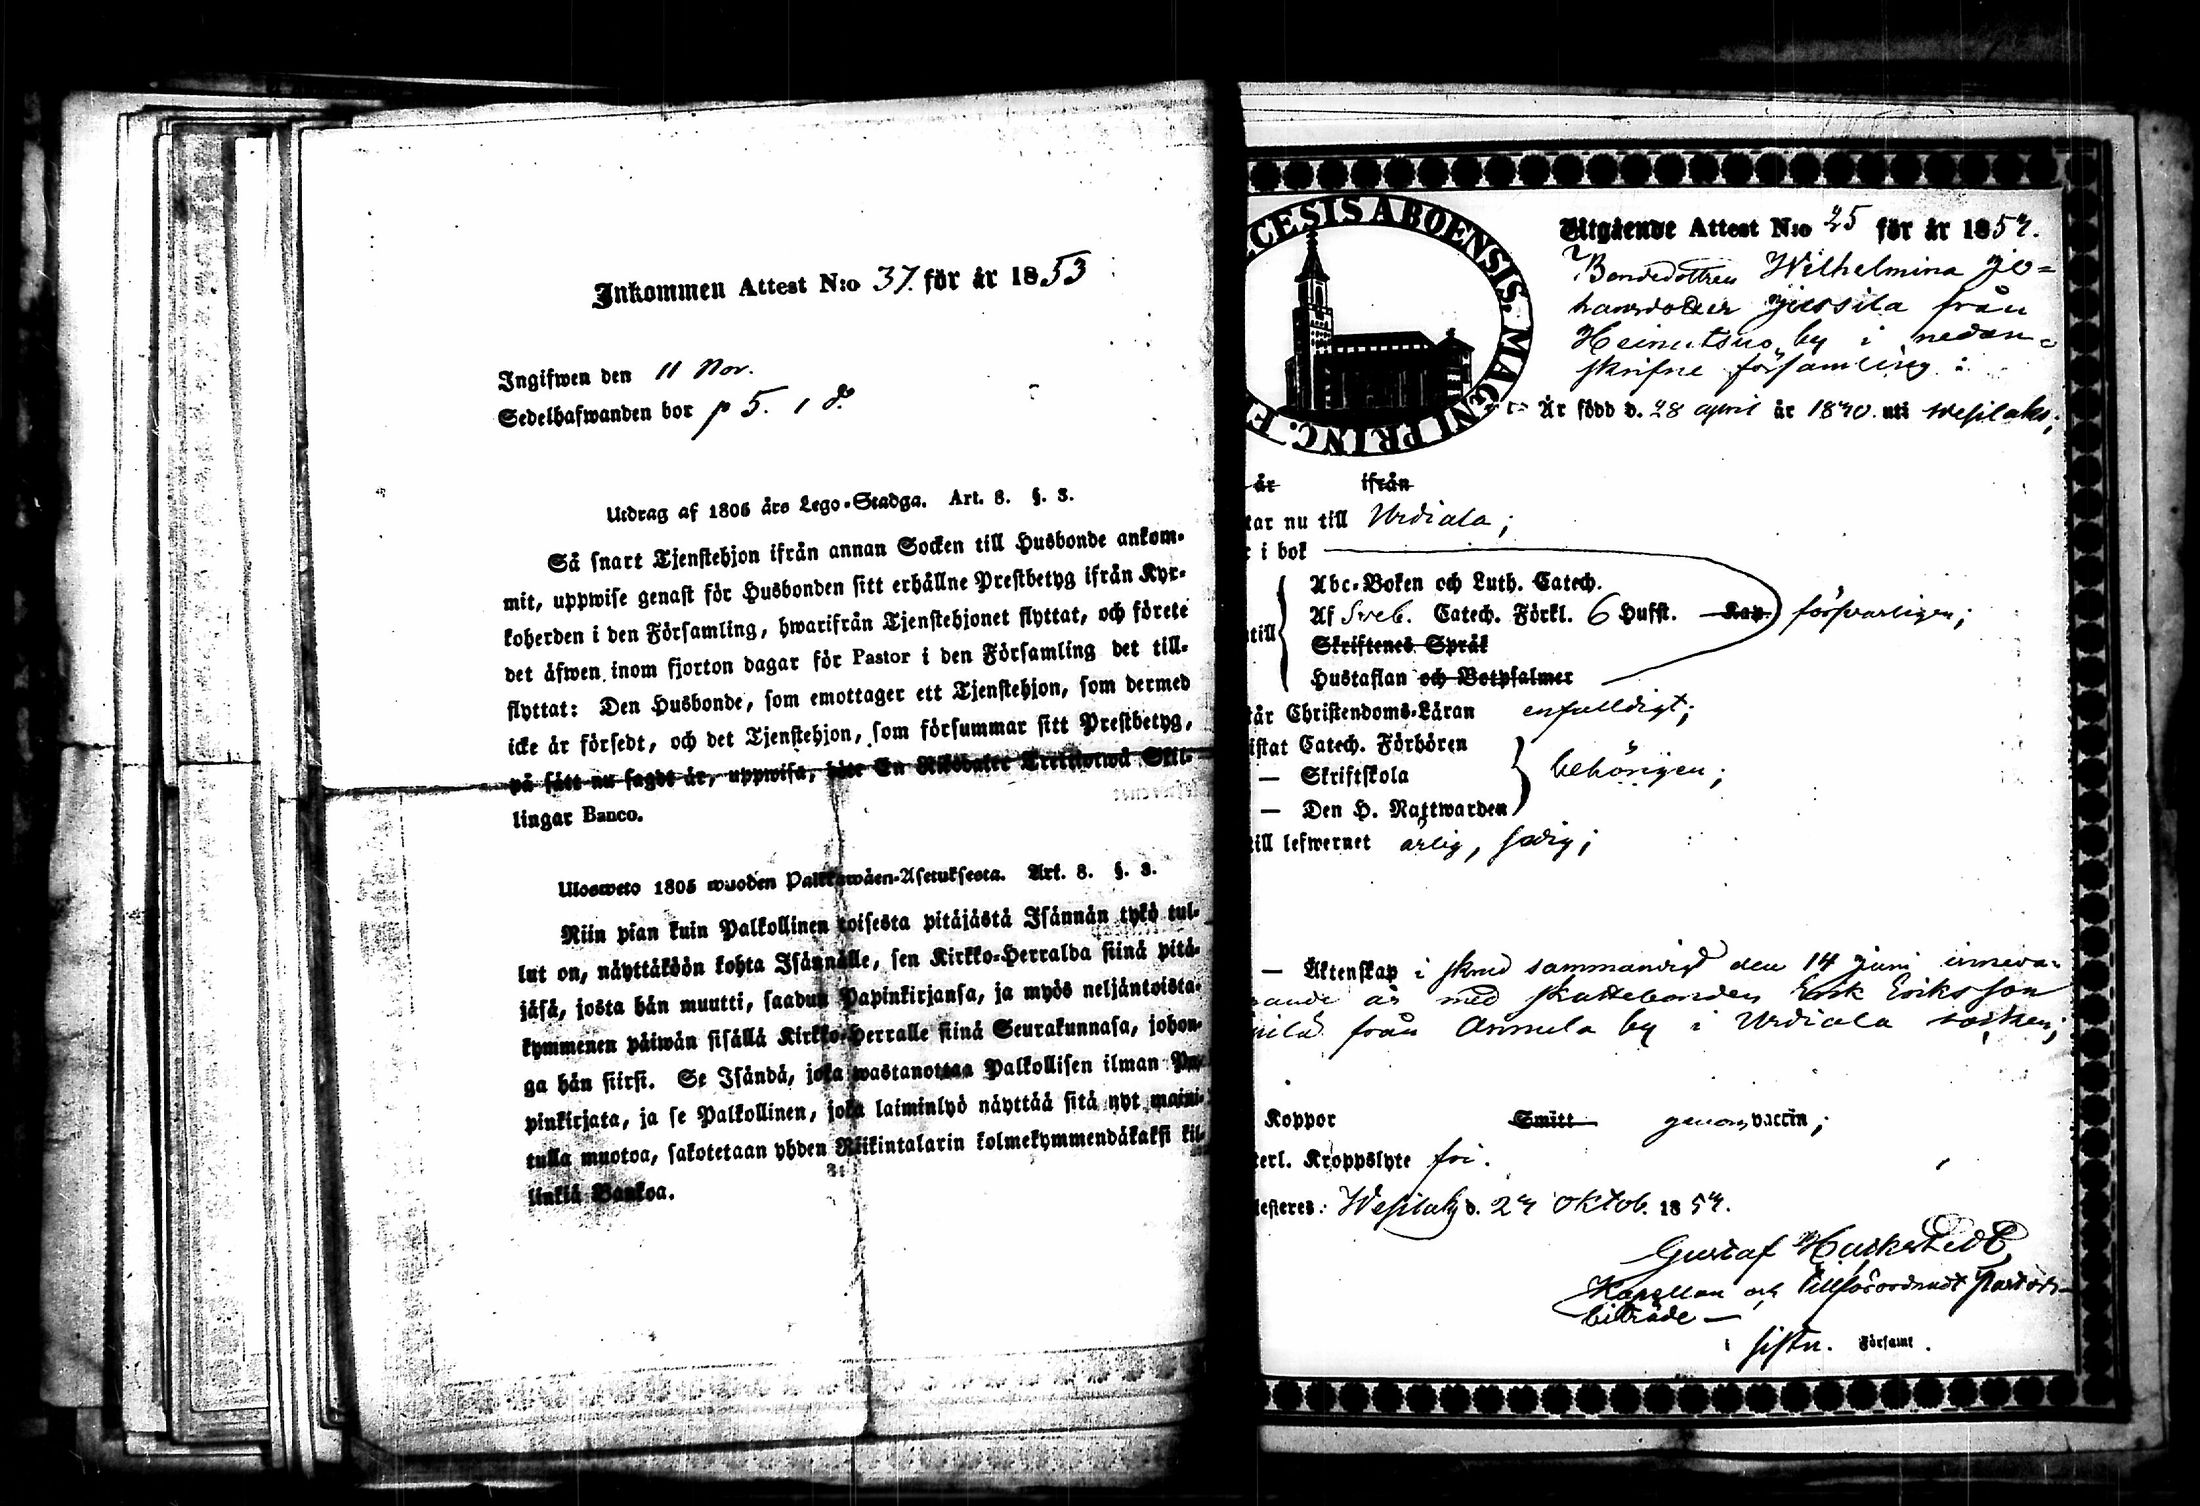 Inkommen Attest N:o 37. för år 1853
Ingifwen den 11 Nov.
Sedelhafwanden bor p 5.
Utdrag af 1805 års Lego-Stadga. Art. 8. §. 3.
Så snart Tjenstehjon ifrån annan Socken till Husbonde ankom-
mit, uppwise genast för Husbonden sitt erhållne Prestbetyg ifrån Kyr-
koherden i den Församling, hwarifrån Tjenstehjonet flyttat, och förete
det äfwen inom fjorton dagar för Pastor i den Församling det till-
flyttat: Den Husbonde, som emottager ett Tjenstehjon, som dermed
icke är försedt, och det Tjenstehjon, som försummar sitt Prestbetyg,
på sätt nu sagdt är, uppwisa, böte En Riksdaler Trettiotwå Skil-
lingar Banco.
Ulosweto 1805 wuoden Palkkawäen-Asetuksesta. Art. 8. §. 3.
Niin pian kuin Palkollinen toisesta pitäjästä Isännän tykö tul-
lut on, näyttäköön kohta Isännälle, sen Kirkko-Herralda siinä pitä-
jäsä, josta hän muutti, saadun Papinkirjansa, ja myös neljäntoista-
kymmenen päiwän sisällä Kirkko-Herralle siinä Seurakunnasa, johon-
ga hän siirsi. Se Isändä, joka wastanottaa Palkollisen ilman Pa-
pinkirjata, ja se Palkollinen, joka laiminlyö näyttää sitä nyt maini-
tulla muotoa, sakotetaan yhden Riikintalarin kolmekymmendäkaksi kil-
linkiä Bankoa.
CESIS ABOENSIS. MAGNI PRINC. F
Utgående Attest N:o 25 för år 1854.
Bondedottren Wilhelmina Jo-
hansdotter Jussila från
Heinutsuo by i nedan-
skrifne församling:
Är född d. 28 april år 1840. uti Wesilaks;
år ifrån
tar nu till Urdiala;
r i bok
Abc-Boken och Luth. Catech.
Af Sveb. Catech. Förkl. 6 Hufst. Kap. försvarligen;
ntill
Skriftenes Språk
Hustaflan och Botpsalmer
tår Christendoms-Läran enfalldigt;
istat Catech. Förhören
— Skriftskola behörigen;
— Den H. Nattwarden
till lefwernet ärlig, sedig;
— Äktenskap i skrud sammanvigd den 14 Juni inneva-
rande år med skattebonden Erik Eriksson
nilä från Annula by i Urdiala socken;
Koppor Smitt genom vaccin;
terl. Kroppslyte fri.
testeres: Wesilaks d. 24 Oktob. 1854.
Gustaf
Kapellan och tillförordnadt pastors-
biträde —
i sistn. Församl.